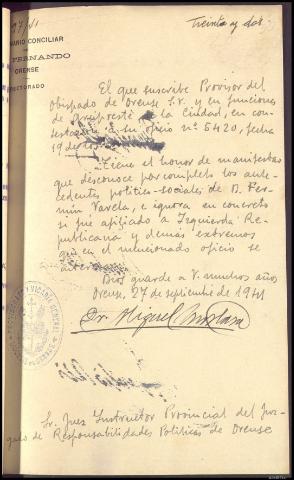 27/VI
Treinta y dos
NARIO CONCILIAR
DE
FERNANDO
ORENSE
RECTORADO
El que suscribe Provisor del
Obispado de Orense S.V. y en funciones
de Arcipreste de la Ciudad, en con-
testación a su oficio nº 5420, fecha
19 de
Tiene el honor de manifestar
que desconoce por completo los ante-
cedentes político-sociales de D. Fer-
mín Varela, e ignora en concreto
si fué afiliado a Izquierda Re-
publicana y demás extremos
que en el mencionado oficio se
Dios guarde a V. muchos años
Orense, 27 de septiembre de 1941
Dr. Miguel
Sr. Juez Instructor Provincial del Juz-
gado de Responsabilidades Políticas de Orense